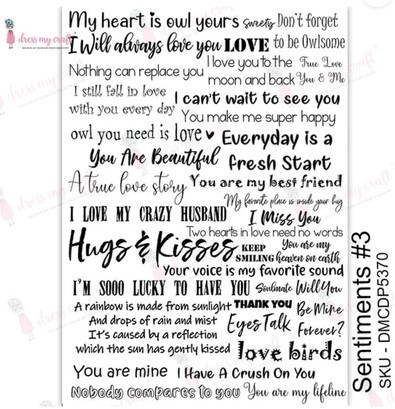 dress my craft
My heart is owl yours Sweety Don't forget
I Will always love you LOVE to be Owlsome
Nothing can replace you I love you to the True Love
moon and back You & Me
I still fall in love
with you every day I can't wait to see you
You make me super happy
owl you need is love Everyday is a
fresh Start
You Are Beautiful
A true love story You are my best friend
My favorite place is inside your hug
I LOVE MY CRAZY HUSBAND I Miss You
Two hearts in love need no words
Hugs & Kisses KEEP SMILING You are my heaven on earth
Your voice is my favorite sound
I'M SOOO LUCKY TO HAVE YOU Soulmate Will You
A rainbow is made from sunlight THANK YOU Be Mine
And drops of rain and mist Eyes Talk Forever?
It's caused by a reflection
which the sun has gently kissed love birds
You are mine I Have A Crush On You
Nobody compares to you You are my lifeline
Sentiments #3
SKU - DMCDP5370